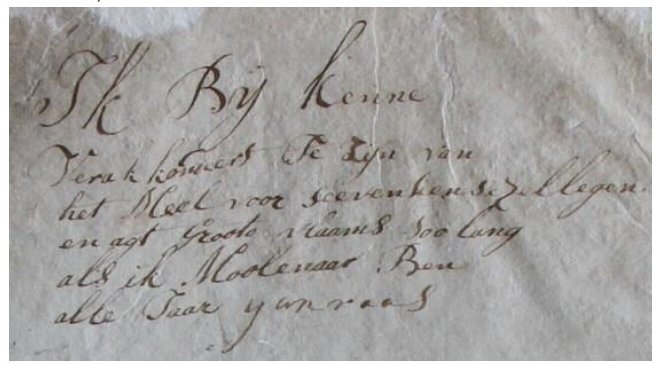 Ik Bij kenne
Verak kondert Te zijn van
het Meel voor seeventien sezellegen
en agt groote vlaams soo lang
als ik Moolenaar Ben
alle Jaar